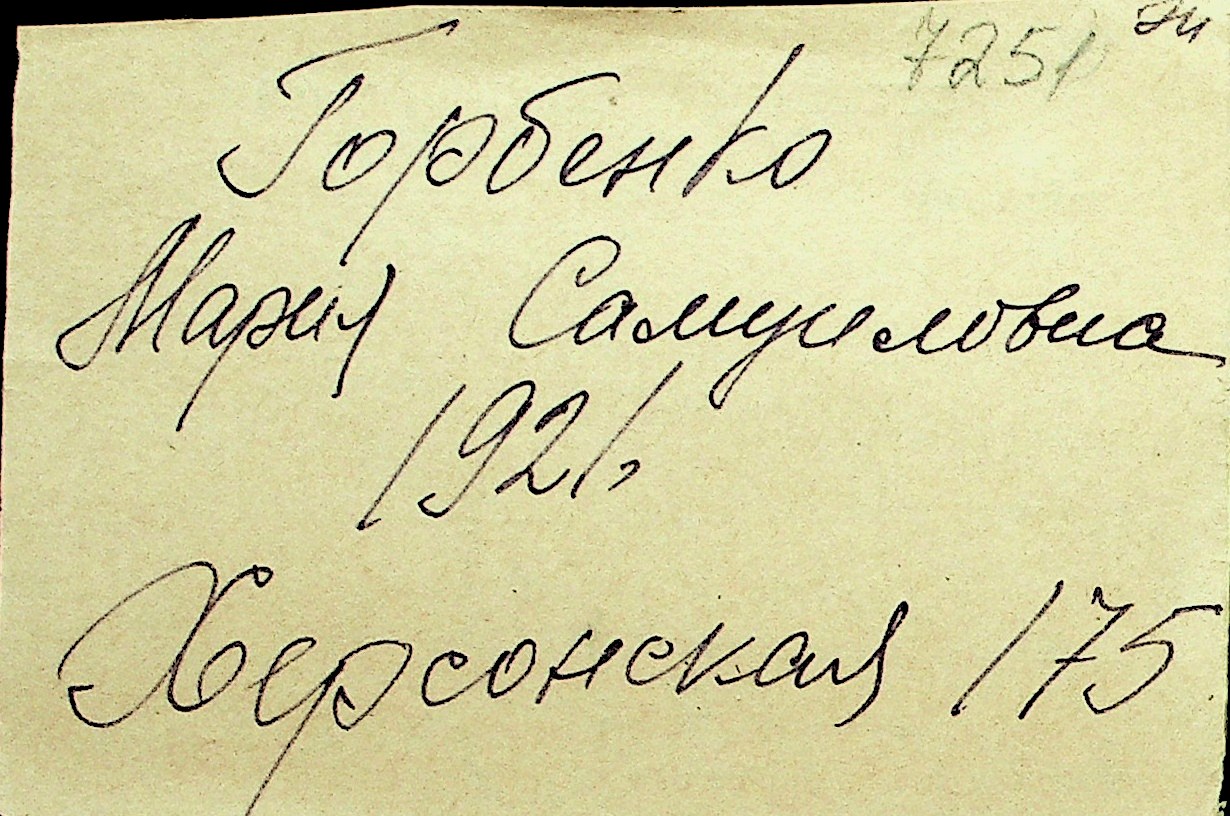 7251
Горбенко
Мария Самуиловна
1921,
Херсонская 175